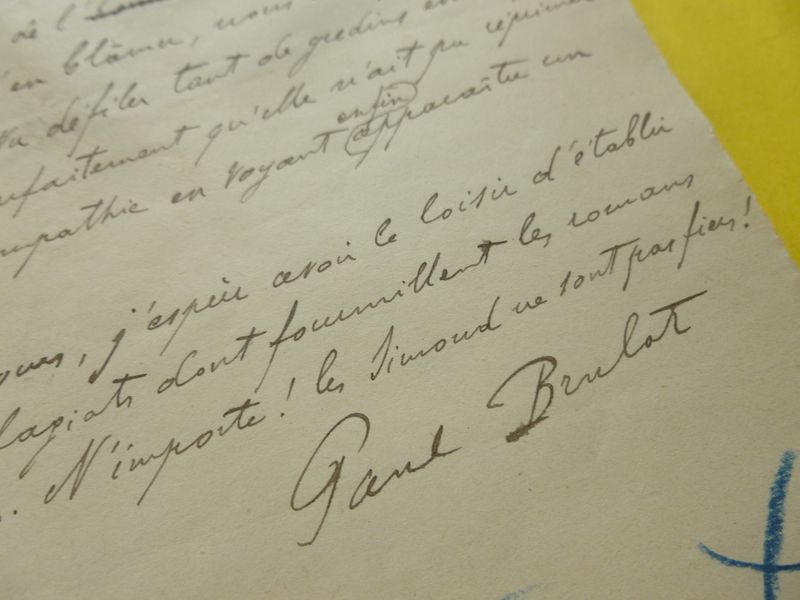 de l'
'en blâmer, nous
vu défiler tant de gredins en
rfaitement qu'elle n'ait pu réprimer
enfin
mpathie en voyant apparaître un
ours, j'espère avoir le loisir d'établir
lagiats dont fourmillent les romans
. N'importe! les Simond ne sont pas fiers!
Paul Brulat